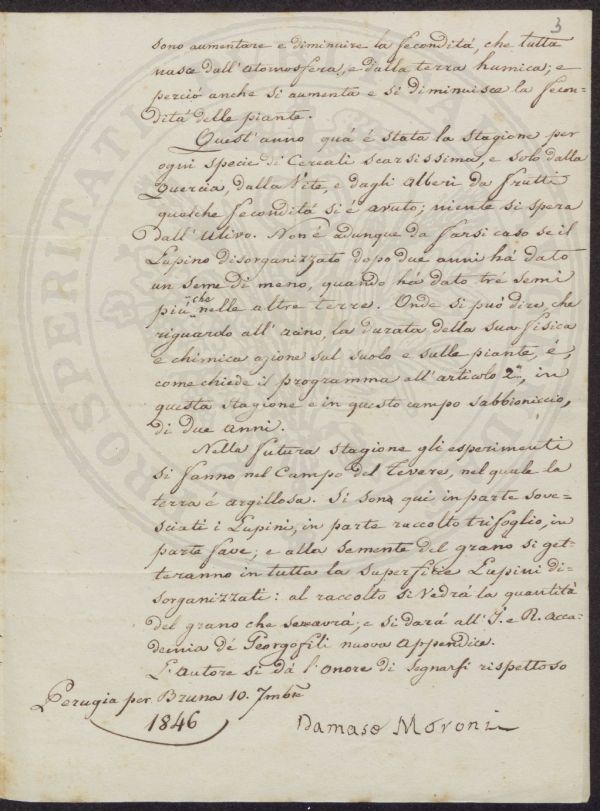 3
sono aumentare e diminuire la fecondità, che tutta
nasce dall'atomosfera, e dalla terra humica; e
perciò anche si aumenta e si diminuisce la fecon-
dità delle piante.
Quest'anno quà è stata la stagione per
ogni specie di Cereali scarsissima, e solo dalla
Quercia, dalla Vite, e dagli Alberi da frutti
qualche fecondità si è avuto; niente si spera
dall'Ulivo. Non è adunque da farsi caso se il
Lupino disorganizzato dopo due anni hà dato
un seme di meno, quando hà dato tré semi
più che nelle altre terre. Onde si può dire, che
riguardo all'acino, la durata della sua fisica
e chimica azione sul suolo e sulle piante, è,
come chiede il programma all'articolo 2º, in
questa stagione e in questo campo sabbioniccio,
di due anni.
Nella futura stagione gli esperimenti
si fanno nel Campo del Tevere, nel quale la
terra è argillosa. Si sono qui in parte sove-
sciati i Lupini, in parte raccolto trifoglio, in
parte fave; e alla semente del grano si get-
teranno in tutta la superficie Lupini di-
sorganizzati: al raccolto si vedrà la quantità
del grano che se avrà; e si darà all'I. e R. Acca-
demia dé Georgofili nuova Appendice.
L'Autore si dà l'onore di segnarsi rispettoso
Perugia per Bruna 10. 7mbre
1846
Damaso Moroni
PROSPERITATI